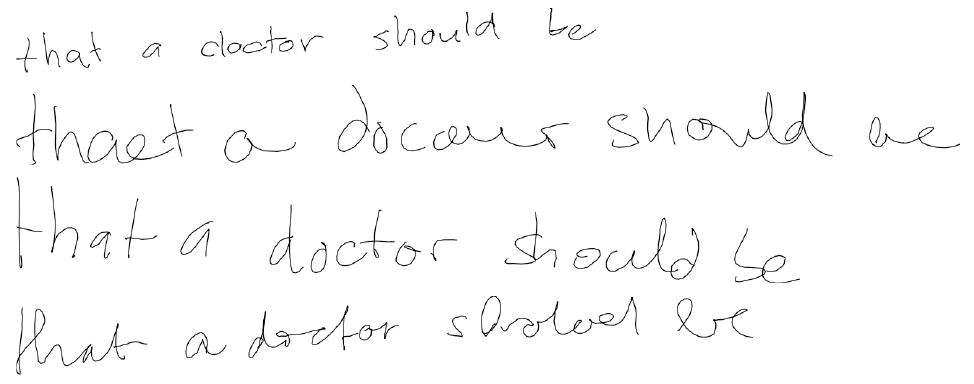 that a doctor should be
that a doctor should be
that a doctor should be
that a doctor should be